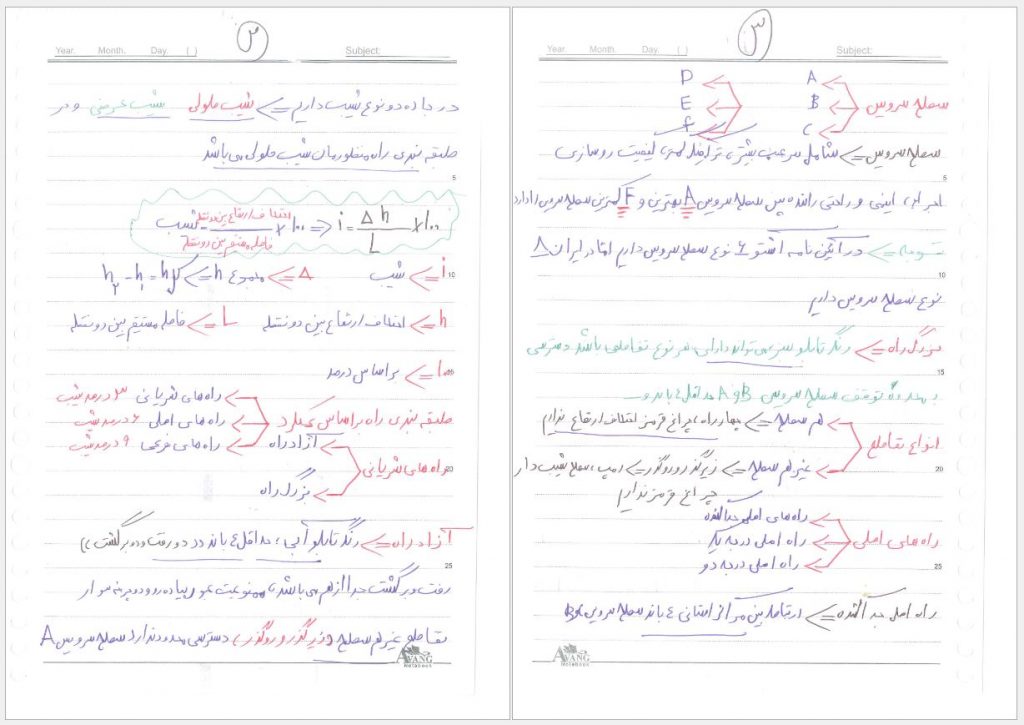 ۲
Year. Month. Day. ( ) Subject:
در جاده دو نوع شیب داریم => شیب طولی شیب عرضی و در
طبقه بندی راه منظورمان شیب طولی می باشد
شیب = اختلاف ارتفاع بین دو نقطه / فاصله مستقیم بین دو نقطه × ۱۰۰ => i = Δh / L × ۱۰۰
i => شیب Δ => مجموع h => h کل = h۲ - h۱
h => اختلاف ارتفاع بین دو نقطه L => فاصله مستقیم بین دو نقطه
۱۰۰ => براساس درصد
راه های شریانی ۳ درصد شیب
طبقه بندی راه براساس عملکرد راه های اصلی ۶ درصد شیب
راه های فرعی ۹ درصد شیب
راه های شریانی آزاد راه
بزرگ راه
آزاد راه => رنگ تابلو آبی، حداقل ۴ باند در دو رفت و دو برگشت))
رفت و برگشت جدا از هم می باشد، ممنوعیت عبور پیاده رو و دوچرخه سوار
تقاطع غیر هم سطح (زیرگذر و روگذر)، دسترسی محدود ندارد سطح سرویس A
AVANG
Notebook
۳
Year. Month. Day. ( ) Subject:
سطح سرویس A B C D E F
سطح سرویس => شامل سرعت بیشتر، ترافیک کمتر، کیفیت روسازی
اجرایی، ایمنی و راحتی راننده پس سطح سرویس A بهترین و F کمترین سطح سرویس را دارد
توجه => در آئین نامه آشتو ۶ نوع سطح سرویس داریم اما در ایران ۵
نوع سطح سرویس داریم
بزرگ راه => رنگ تابلو سبز می تواند دارای هر نوع تقاطعی باشد دسترسی
محدوده توقف سطح سرویس A و B حداقل ۴ باند و
انواع تقاطع هم سطح => چهارراه، چراغ قرمز اختلاف ارتفاع نداریم
غیر هم سطح => زیرگذر و روگذر => رمپ، سطح شیب دار
چراغ قرمز نداریم
راه های اصلی راه های اصلی جداکننده
راه اصلی درجه یک
راه اصلی درجه دو
راه اصلی جداکننده => ارتباط بین مراکز استانی ۴ باند سطح سرویس B
AVANG
Notebook